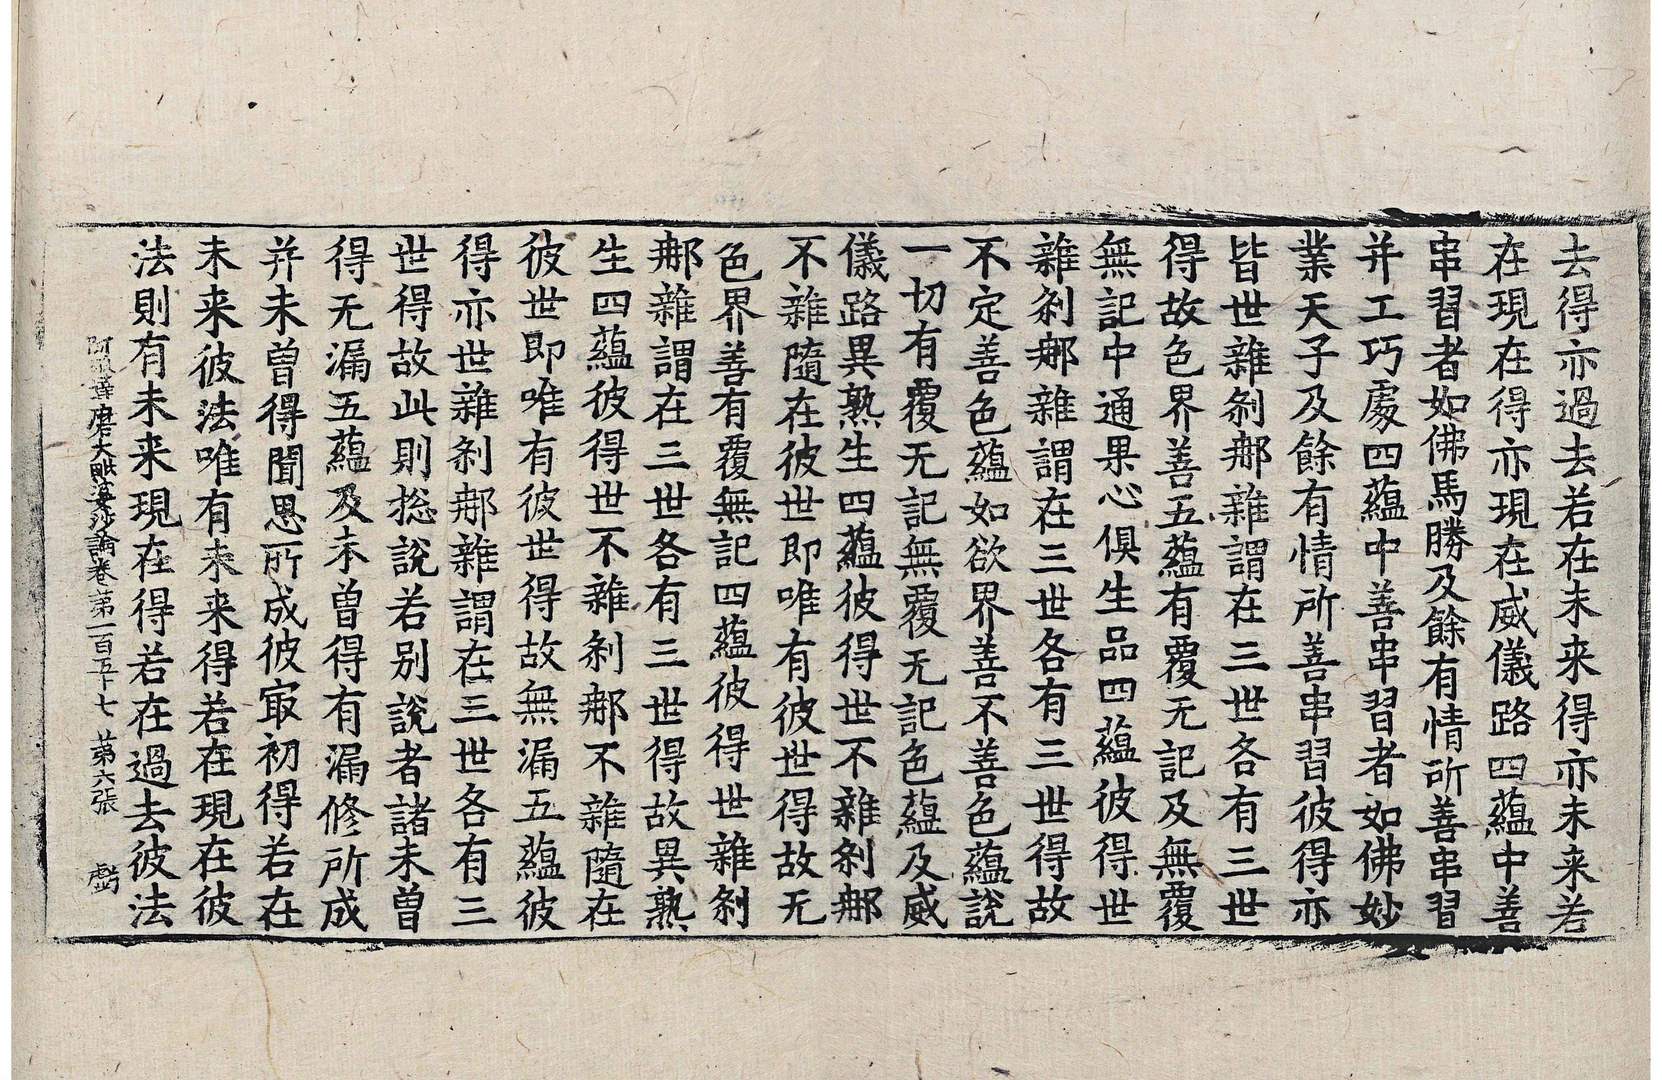 去得亦過去若在未来得亦未来若
在現在得亦現在威儀路四蘊中善
串習者如佛馬勝及餘有情所善串習
并工巧處四蘊中善串習者如佛妙
業天子及餘有情所善串習彼得亦
皆世雜刹㨿雜謂在三世各有三世
得故色界善五蘊有覆无記及無覆
無記中通果心俱生品四蘊彼得世
雜刹那雜謂在三世各有三世得故
不定善色蘊如欲界善不善色蘊說
一切有覆无記無覆无記色蘊及威
儀路異熟生四蘊彼得世不雜刹那
不雜隨在彼世即唯有彼世得故无
色界善有覆無記四蘊彼得世雜刹
那雜謂在三世各有三世得故異熟
生四蘊彼得世不雜刹那不雜隨在
彼世即唯有彼世得故無漏五蘊彼
得亦世雜刹那雜謂在三世各有三
世得故此則捴說若別說者諸未曽
得无漏五蘊及未曽得有漏修所成
并未曽得聞思所成彼㝡初得若在
未来彼法唯有未来得若在現在彼
法則有未来現在得若在過去彼法
阿毗達磨大毗婆沙論卷第一百五十七 第六張 虧